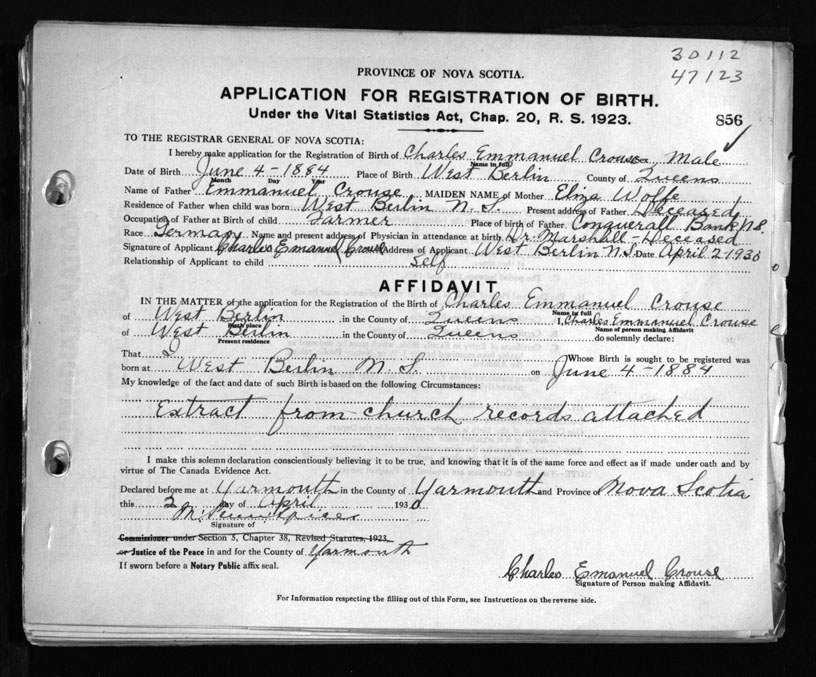 30112
47123
PROVINCE OF NOVA SCOTIA.
APPLICATION FOR REGISTRATION OF BIRTH.
Under the Vital Statistics Act, Chap. 20, R. S. 1923. 856
TO THE REGISTRAR GENERAL OF NOVA SCOTIA:
I hereby make application for the Registration of Birth of Charles Emmanuel Crouse Male
Name in full
Date of Birth June 4-1884 Place of Birth West Berlin County of Queens
Month Day Year
Name of Father Emmanuel Crouse MAIDEN NAME of Mother Elma Wolfe
Residence of Father when child was born West Berlin N.S. Present address of Father Deceased
Occupation of Father at Birth of child Farmer Place of birth of Father Conquerall Bank N.S.
Race Germany Name and present address of Physician in attendance at birth Dr. Marshall-Deceased
Signature of Applicant Charles Emanuel Crouse Address of Applicant West Berlin N.S. Date April 2-1930
Relationship of Applicant to child Self
AFFIDAVIT
IN THE MATTER of the application for the Registration of the Birth of Charles Emmanuel Crouse
Name in full
of West Berlin in the County of Queens I, Charles Emmanuel Crouse
Birth place Name of person making Affidavit
of West Berlin in the County of Queens do solemnly declare:
Present residence
That I Whose Birth is sought to be registered was
born at West Berlin N.S. on June 4-1884
My knowledge of the fact and date of such Birth is based on the following Circumstances:
Extract from church records attached
I make this solemn declaration conscientiously believing it to be true, and knowing that it is of the same force and effect as if made under oath and by
virtue of The Canada Evidence Act.
Declared before me at Yarmouth in the County of Yarmouth and Province of Nova Scotia
this 2 day of April 1930
Signature of
Commissioner under Section 5, Chapter 38, Revised Statutes, 1923,
or Justice of the Peace in and for the County of Yarmouth
If sworn before a Notary Public affix seal.
Charles Emanuel Crouse
Signature of Person making Affidavit.
For Information respecting the filling out of this Form, see Instructions on the reverse side.